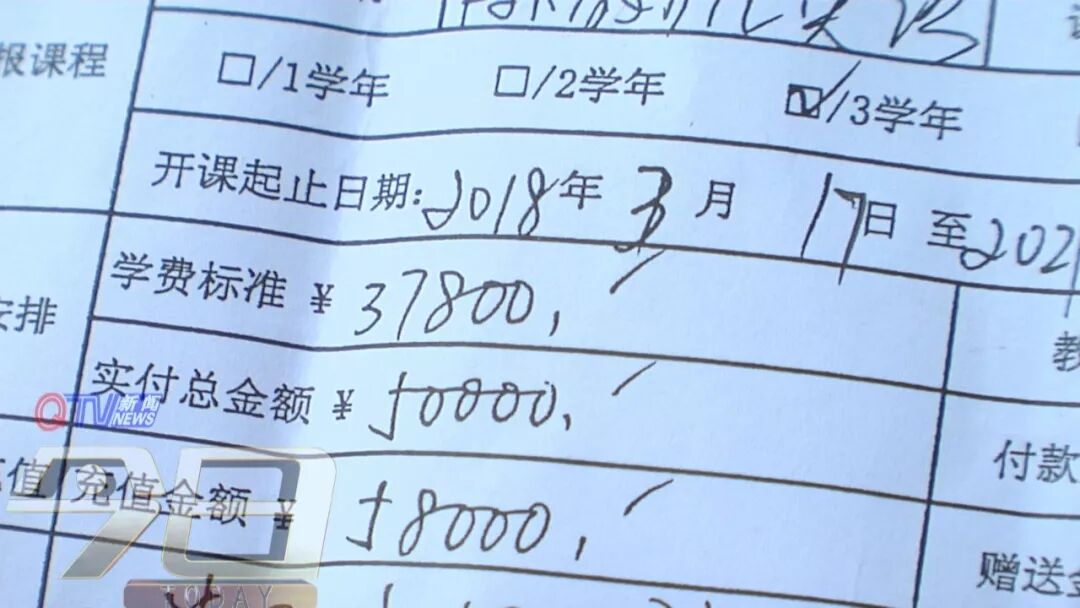 报课程
□/1学年 □/2学年 ☑/3学年
开课起止日期:2018年3月17日 至202
学费标准 ¥37800,
安排
实付总金额 ¥50000,
QTV新闻 NEWS
付款
充值金额 ¥58000,
赠送金
今日
TODAY